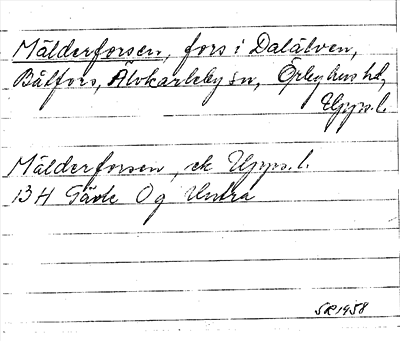 Mälderforsen, fors i Dalälven,
Båtfors, Älvkarleby sn, Örbyhus hd,
Upps. l.
Mälderforsen, ek Upps. l.
13 H Gävle Og Untra
SR 1958